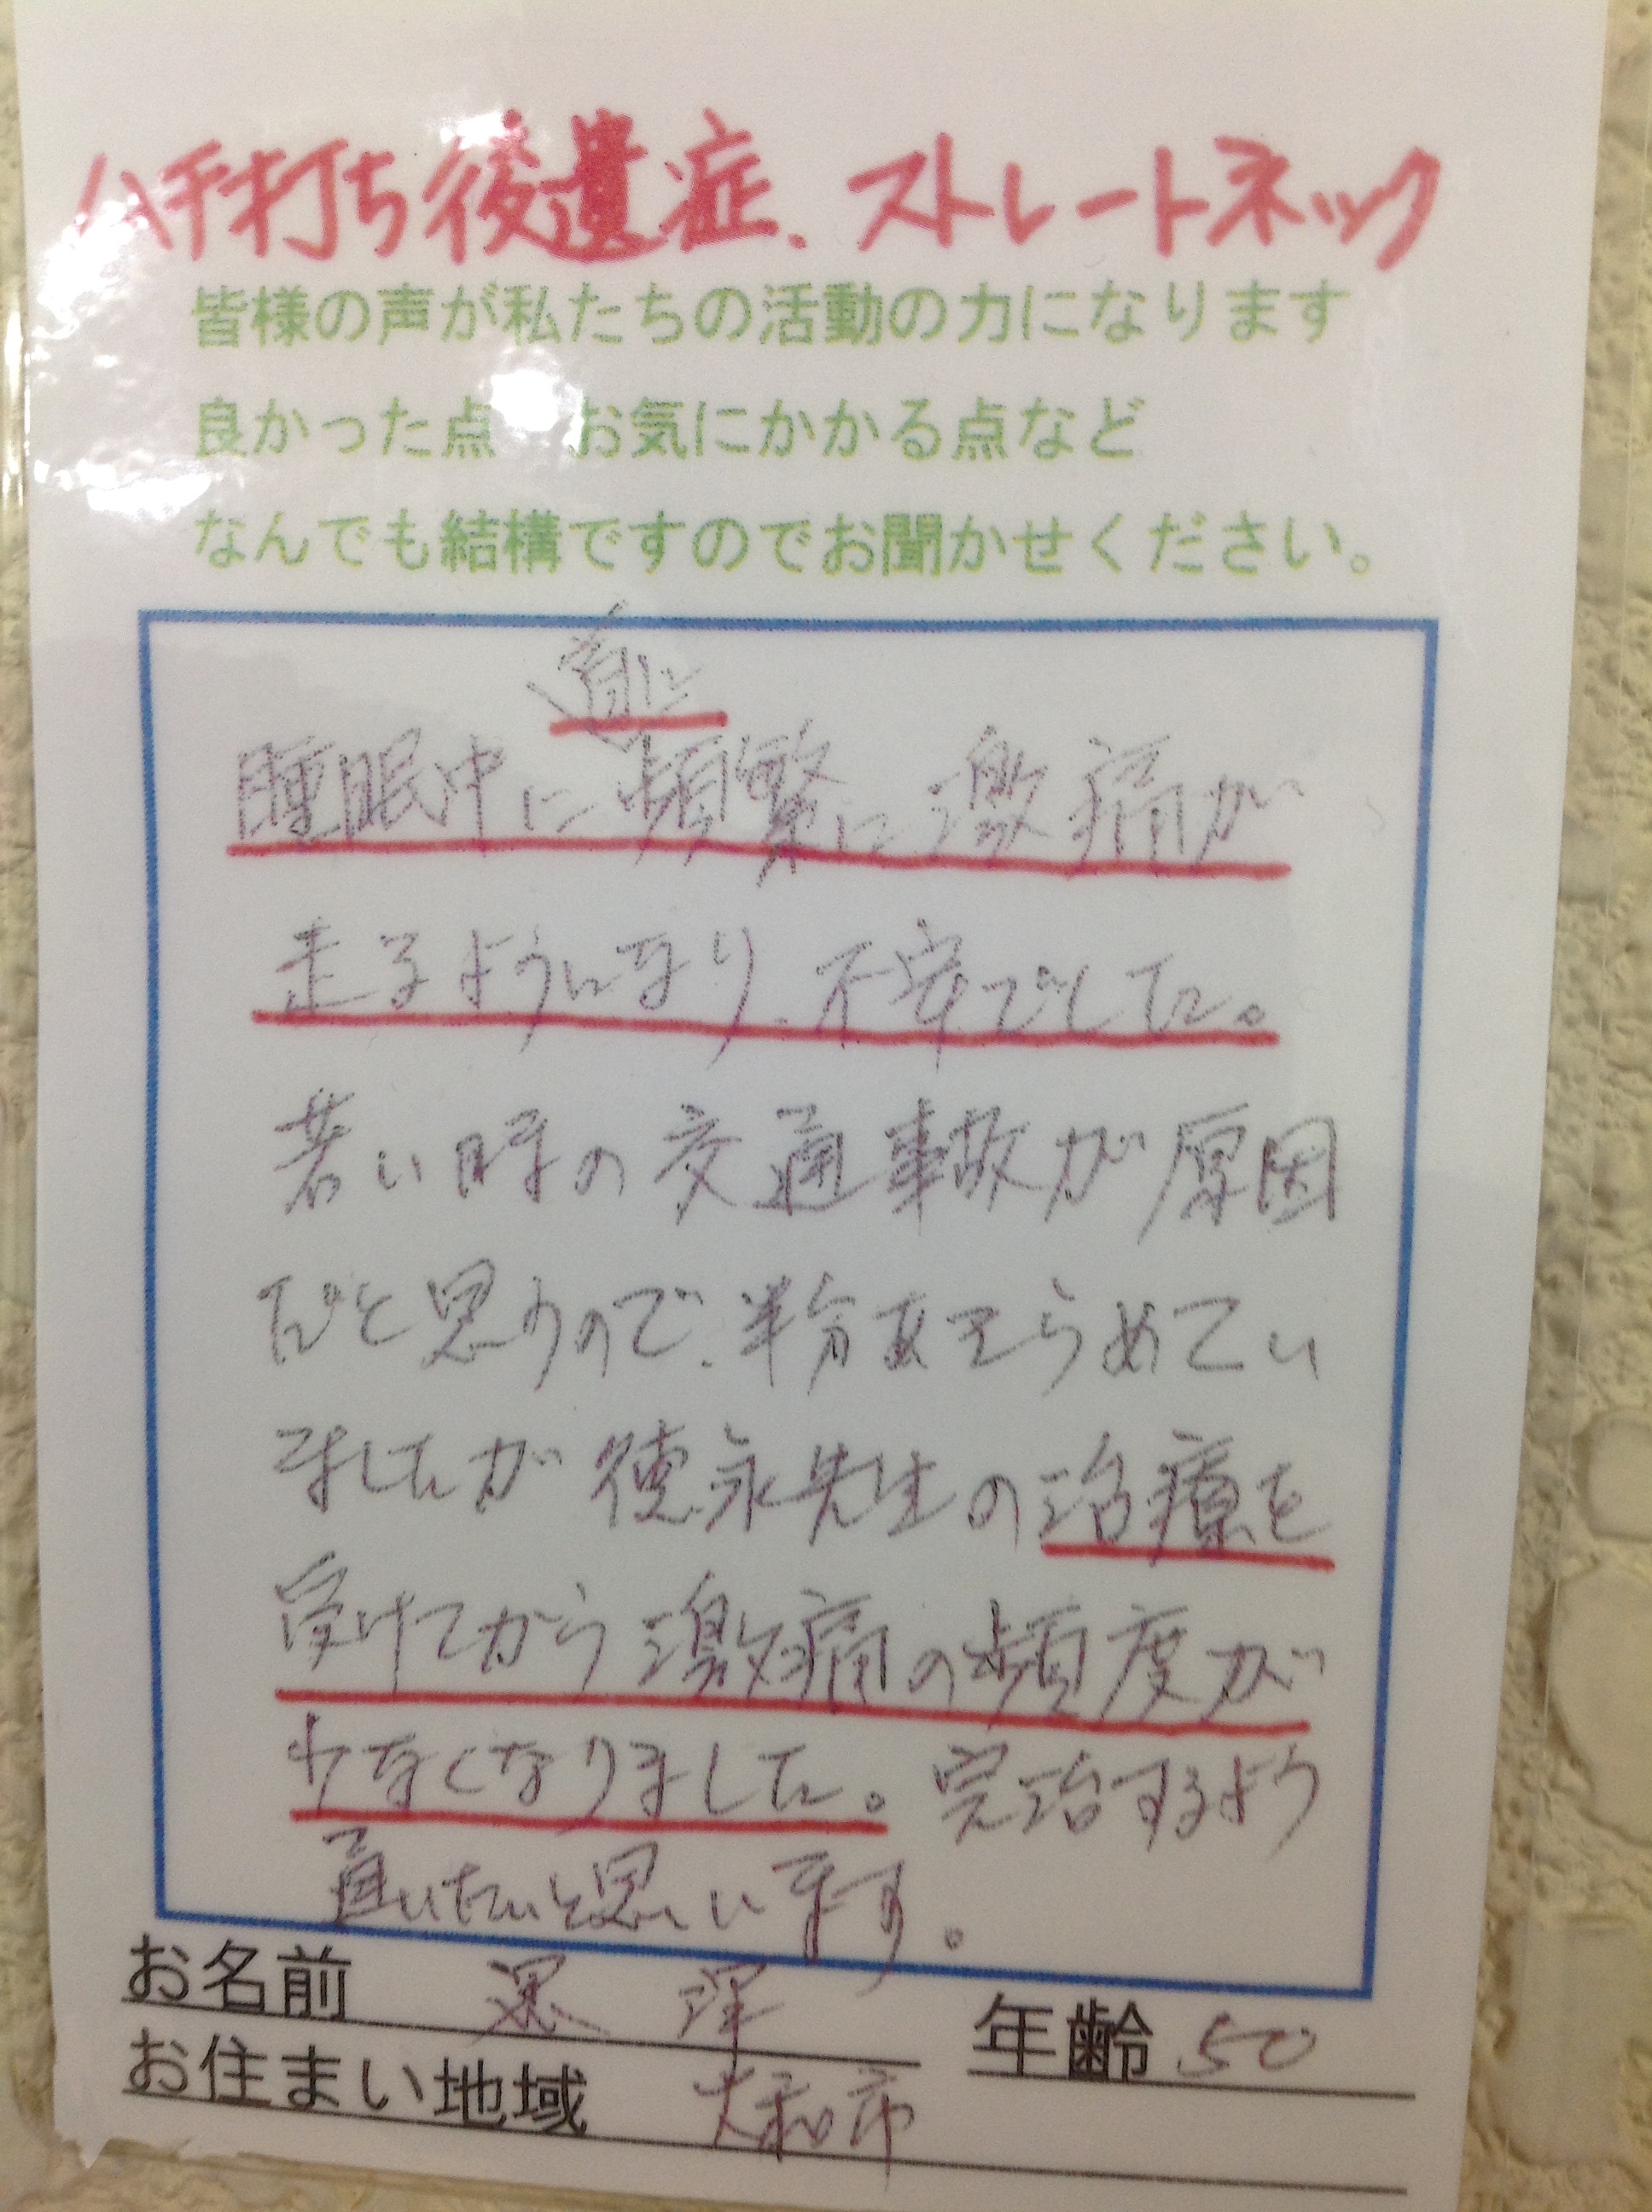 ムチ打ち後遺症、ストレートネック
皆様の声が私たちの活動の力になります
良かった点 お気にかかる点など
なんでも結構ですのでお聞かせください。
首に
睡眠中に頻繁に激痛が
走るようになり、不安でした。
若い時の交通事故が原因
だと思うので、半分あきらめてい
ましたが徳永先生の治療を
受けてから激痛の頻度が
少なくなりました。完治するよう
直したいと思います。
お名前 黒澤 年齢 50
お住まい地域 大和市